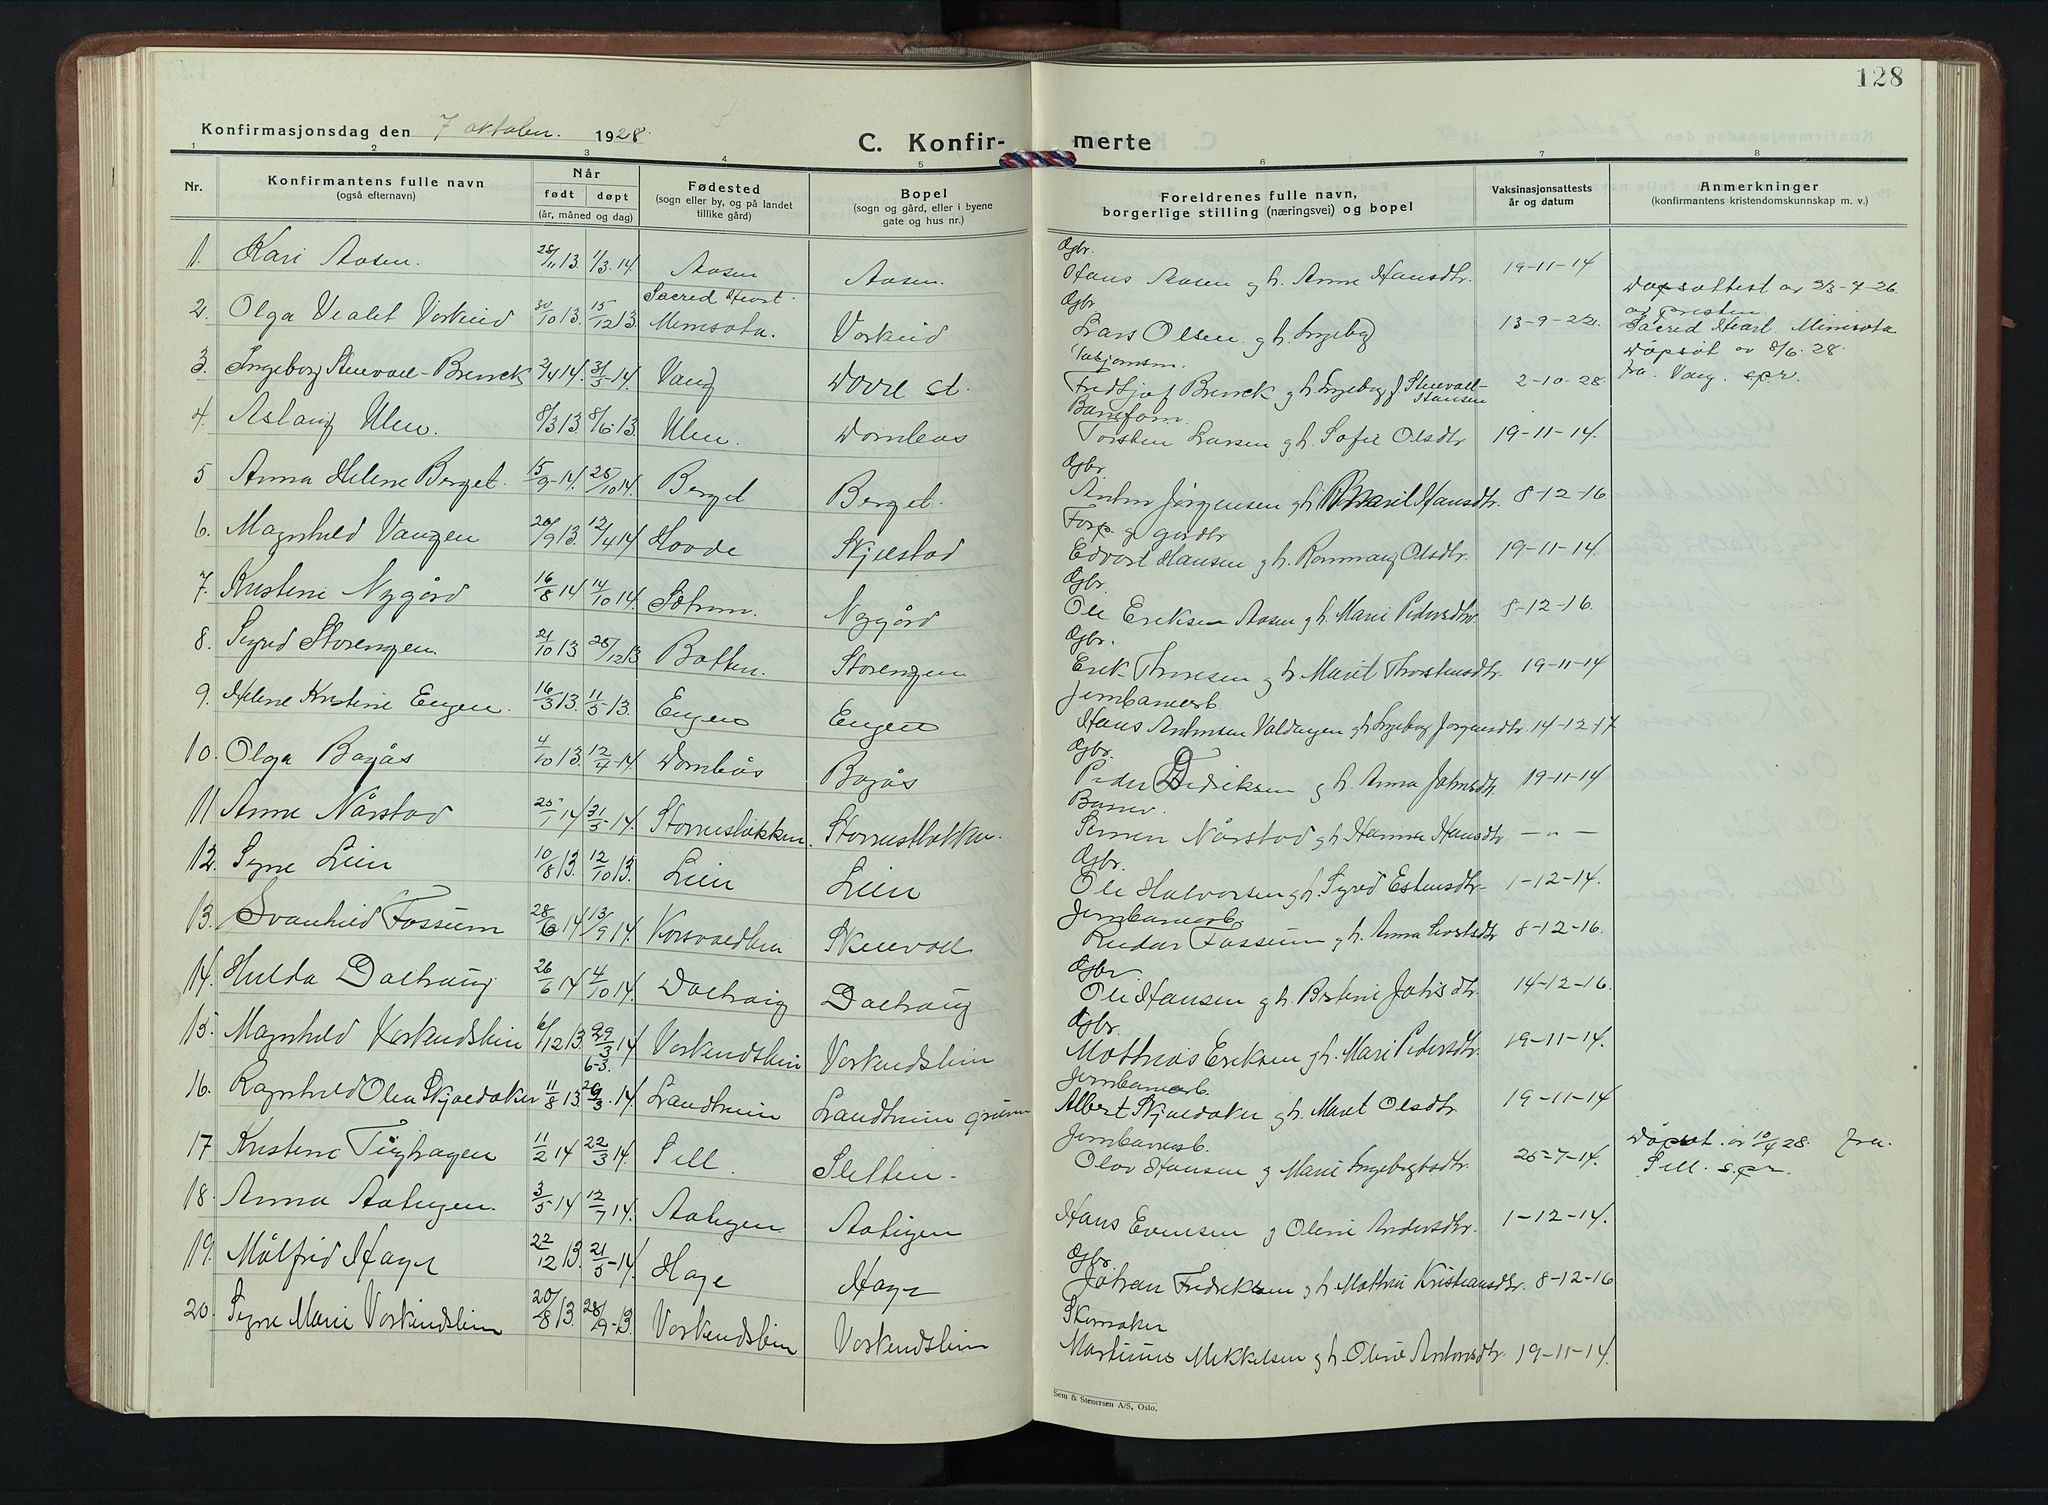 128
Konfirmasjonsdag den 7 oktober 1928.
C. Konfirmerte
1 2 3 4 5 6 7 8
Nr.
Konfirmantens fulle navn
(også efternavn)
Når
født døpt
(år, måned og dag)
Fødested
(sogn eller by, og på landet
tillike gård)
Bopel
(sogn og gård, eller i byene
gate og hus nr.)
Foreldrenes fulle navn,
borgerlige stilling (næringsvei) og bopel
Vaksinasjonsattests
år og datum
Anmerkninger
(konfirmantens kristendomskunnskap m. v.)
1. Kari Aasen. 28/11 13 1/3. 14. Aasen Aasen. Gbr. Hans Aasen g h. Anne Hansdtr. 19-11-14
2. Olga Vialet Vorkind 30/10 13. 15/12 13. Sacred Heart. Minnsota. Vorkind Gbr Lars Olsen g h. Ingebg 13-9-22. Dåpsattest av 23-4-26. av presten Sacred Heart Minisota
3. Ingeborg Stuevoll-Brenck 3/4 14. 31/5-14. Vang Dovre st. Fridtjof Brenck g h Ingeborg J Stuevoll-Hansen 2-10-28. Dåpsat av 8/6. 28. fra. Vang. s.pr.
4. Aslaug Ulen. 8/3 13. 8/6-13. Ulen. Dombås Baneform. Torsten Larsen g h. Sofie Olsdtr 19-11-14.
5 Anna Helene Berget. 15/9-14. 25/10 14. Berget Berget. Gbr Anton Jørgensen g h Marit Hansdtr. 8-12-16.
6. Magnhild Vangen 20/9 13. 12/4 14 Hovde Skjelstad Forp. g gardbr Edvart Hansen g h. Rønnaug Olsdtr. 19-11-14.
7. Kristine Nygård 16/8 14 14/10 14. Nygård Gbr. Ole Eriksen Aasen g h. Mari Pedersdtr 8-12-16.
8 Sigrid Storengen 21/10 13 28/12 13 Botten. Storengen Gbr. Erik Thoresen g h Marit Thorstensdtr. 19-11-14
9. Helene Kristine Engen. 16/3 13. 11/5 13. Engen Engen Jernbanearb. Hans Antonsen Valdngen g h. Ingeborg Jørgensdtr. 14-12-17.
10. Olga Bagås 4/10 13. 12/4-14. Dombås Bagås Gbr. Peder Didriksen g h. Anna Johnsdtr. 19-11-14
11 Anne Nårstad 25/1 14 31/5-14. Storrusløkken. Storrusløkken. Banev. Simen Nårstad g h Hanna Hansdtr. -"-
12. Signe Lien 10/8 13. 12/10 13. Lien Lien Gbr. Ole Halvorsen g h. Sigrid Estensdtr- 1-12-14.
13. Svanhild Fossum 28/6 14 13/9 14. Korsvoldbra Skuevoll Jernbanearb. Reidar Fossum g h. Anna 8-12-16.
14. Hulda Daltraug 26/6 14 4/10 14. Daltraug Daltraug Gbr. Ole Hansen g h. 14-12-16.
15. Magnhild Vorkindslien 6/12 13 29/3 14 Vorkindslien Vorkindslien Gbr. Mathias Eriksen g h. Mari Pedersdtr. 19-11-14.
6-3.
16. Ragnhild Olea Skjoldaker 11/8 13 29/3. 14. Landheim Landheim grunn Jernbanearb. Albert Skjoldaker g h. Marit Olsdtr 19-11-14
17 Kristine Tughagen 11/2 14 22/3 14. Sell. Sletten. Jernbanearb. Olav Hansen g Marie Ingeborgsdtr. 25-7-14. Dåpsat. av 10/4 28. fra. Sell. s.pr.
18. Anna Aatingen. 3/5 14 12/7 14. Aatingen Aatingen Hans Evensen g Oline Andersdtr. 1-12-14.
19. Målfrid Hage 22/12 13. 21/5-14. Hage Hage Gbr. Johan Fredriksen g h Mathea Kristiansdtr. 8-12-16
20. Signe Marie Vorkindslien 20/8 13. 28/9-13. Vorkindslien Vorkindslien Skomaker Martinus Mikkelsen g h. Oline Antonsdtr 19-11-14.
Sem & Stenersen A/S, Oslo.